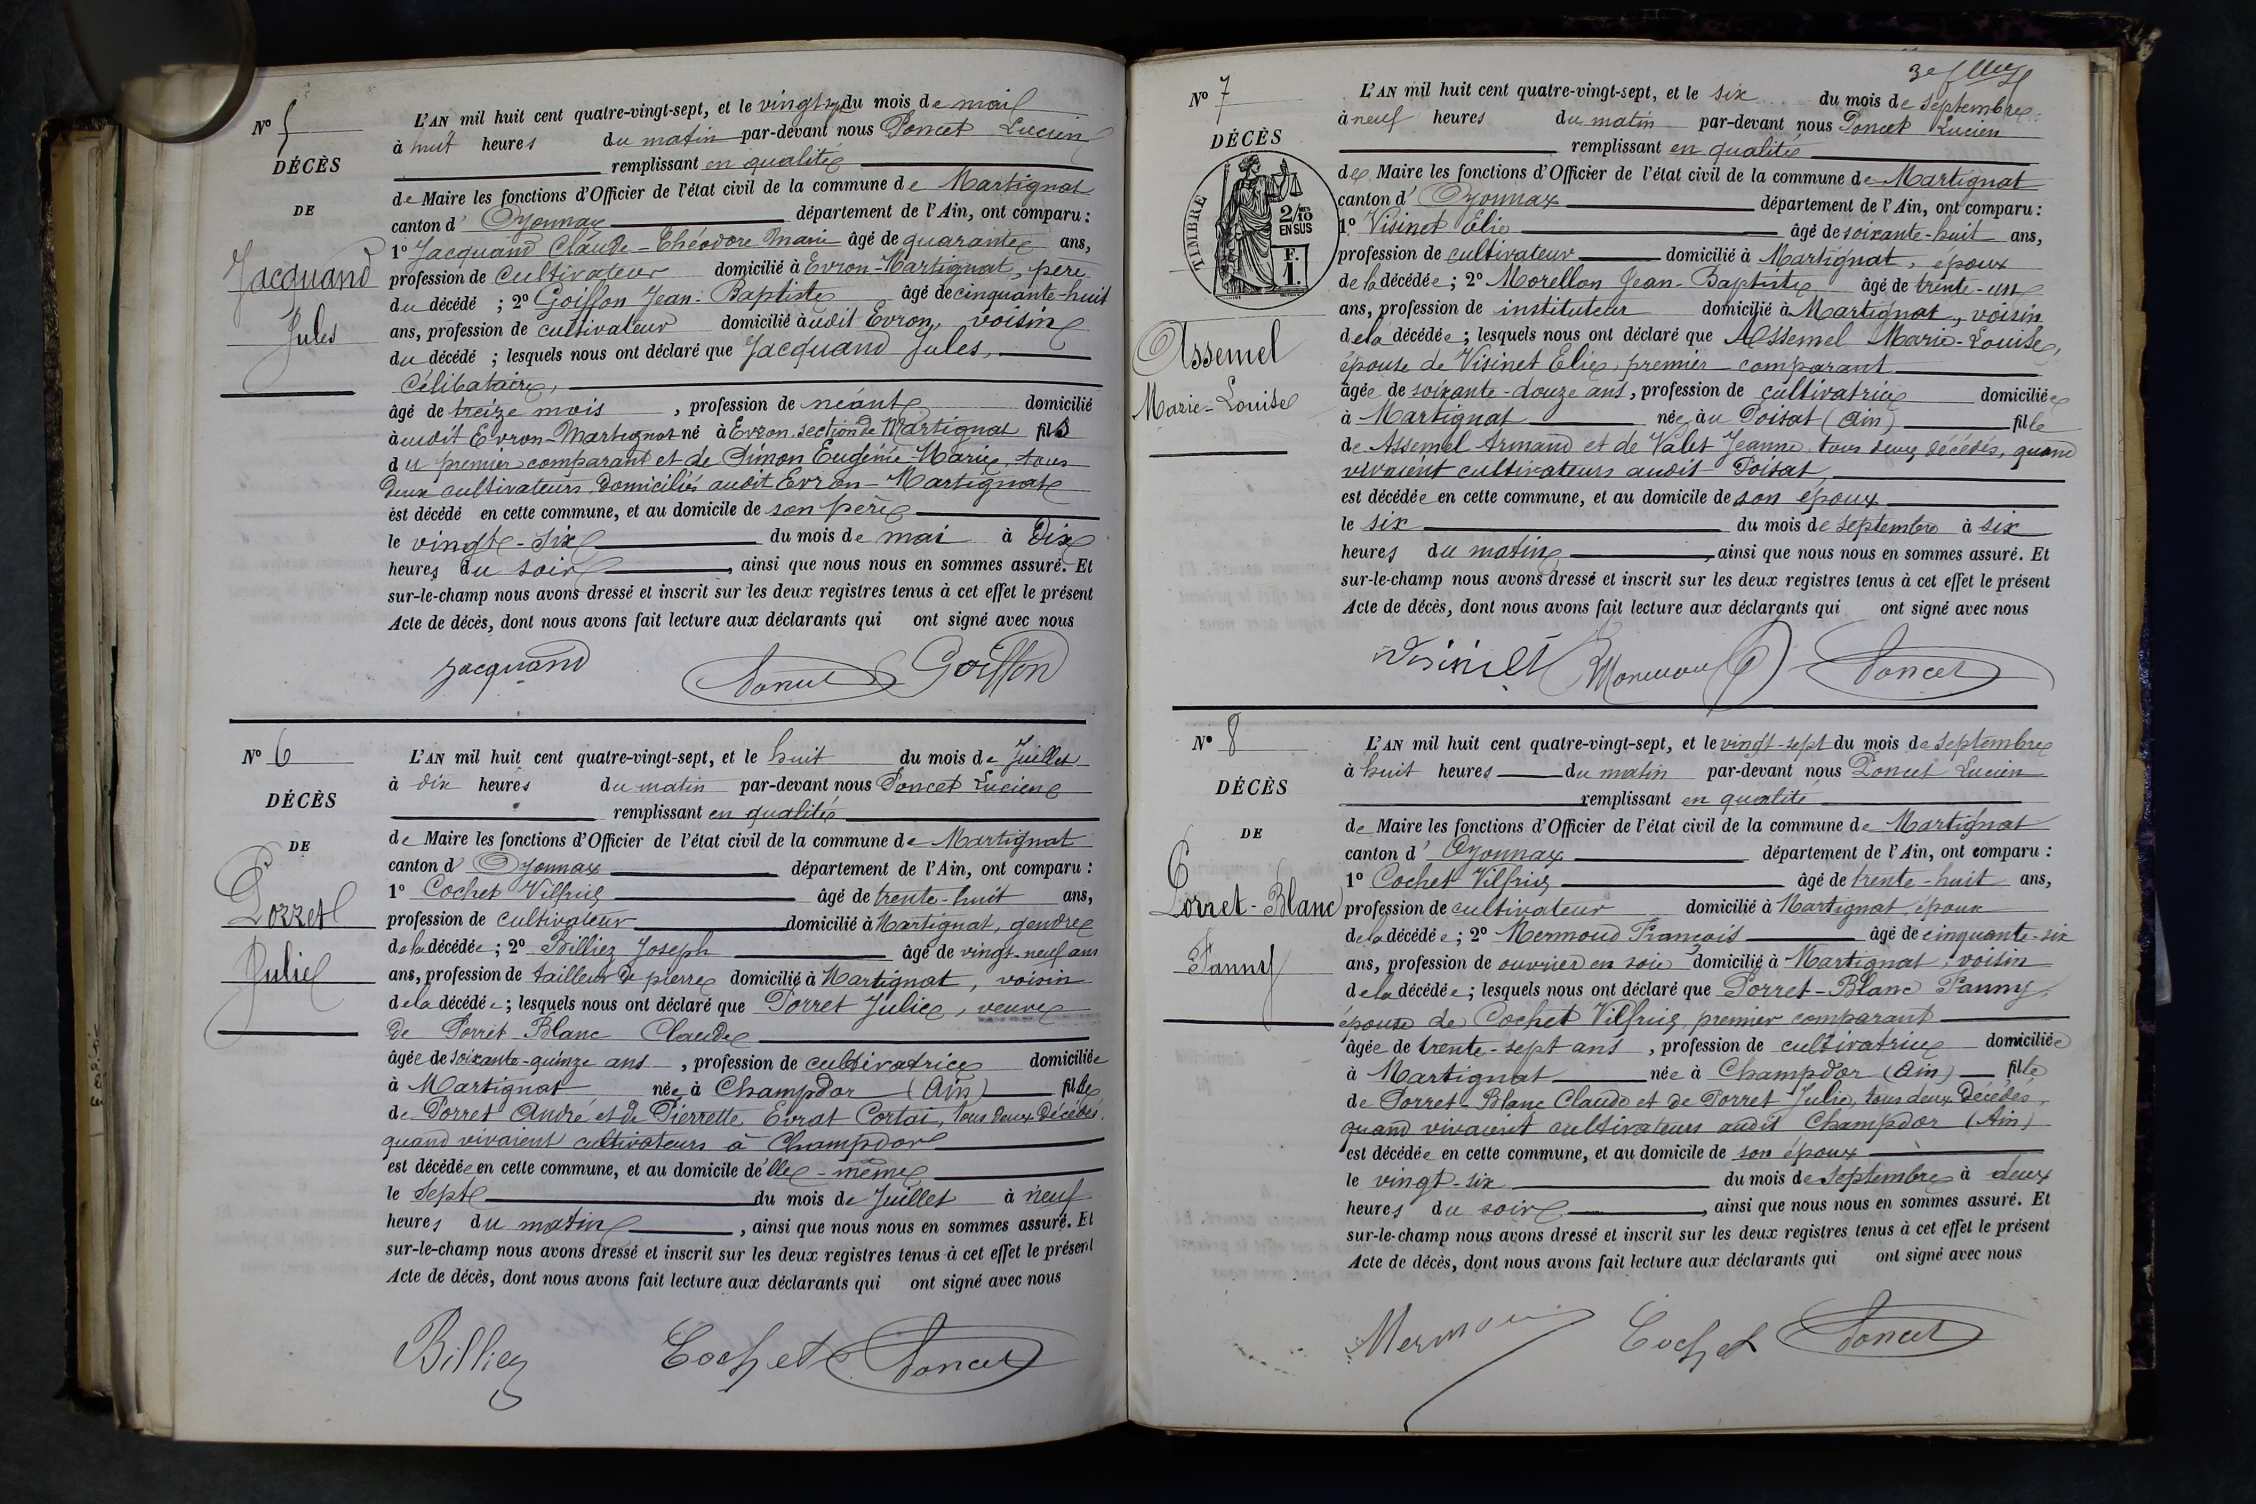 N° 5
DÉCÈS
DE
Jacquand
Jules
L'AN mil huit cent quatre-vingt-sept, et le vingt sept du mois de mai
à huit heures du matin par-devant nous Poncet Lucien
remplissant en qualité
de Maire les fonctions d'Officier de l'état civil de la commune de Martignat
canton d' Oyonnax département de l'Ain, ont comparu :
1° Jacquand Claude-Théodore Marie âgé de quarante ans,
profession de cultivateur domicilié à Evron-Martignat, père
du décédé ; 2° Goiffon Jean-Baptiste âgé de cinquante-huit
ans, profession de cultivateur domicilié audit Evron, voisin
du décédé ; lesquels nous ont déclaré que Jacquand Jules,
célibataire,
âgé de treize mois , profession de néant domicilié
audit Evron-Martignat né à Evron section de Martignat fils
du premier comparant et de Simon Eugénie-Marie, tous
deux cultivateurs domiciliés audit Evron-Martignat
est décédé en cette commune, et au domicile de son père
le vingt-six du mois de mai à dix
heures du soir , ainsi que nous nous en sommes assuré. Et
sur-le-champ nous avons dressé et inscrit sur les deux registres tenus à cet effet le présent
Acte de décès, dont nous avons fait lecture aux déclarants qui ont signé avec nous
Jacquand Poncet Goiffon
N° 6
DÉCÈS
DE
Porret
Julie
L'AN mil huit cent quatre-vingt-sept, et le huit du mois de Juillet
à dix heures du matin par-devant nous Poncet Lucien
remplissant en qualité
de Maire les fonctions d'Officier de l'état civil de la commune de Martignat
canton d' Oyonnax département de l'Ain, ont comparu :
1° Cochet Vilfrid âgé de trente-huit ans,
profession de cultivateur domicilié à Martignat, gendre
de la décédée ; 2° Billiez Joseph âgé de vingt-neuf ans
ans, profession de tailleur de pierre domicilié à Martignat, voisin
de la décédée ; lesquels nous ont déclaré que Porret Julie, veuve
de Porret Blanc Claude
âgée de soixante-quinze ans , profession de cultivatrice domiciliée
à Martignat née à Champdor (Ain) fille
de Porret André et de Pierrette Evrat Cortai, tous deux décédés,
quand vivaient cultivateurs à Champdor
est décédée en cette commune, et au domicile d'elle-même
le sept du mois de Juillet à neuf
heures du matin , ainsi que nous nous en sommes assuré. Et
sur-le-champ nous avons dressé et inscrit sur les deux registres tenus à cet effet le présent
Acte de décès, dont nous avons fait lecture aux déclarants qui ont signé avec nous
Billiez Cochet Poncet
N° 7
DÉCÈS
TIMBRE
2/10
EN SUS
F.
1.
Assemel
Marie-Louise
L'AN mil huit cent quatre-vingt-sept, et le six du mois de septembre
à neuf heures du matin par-devant nous Poncet Lucien
remplissant en qualité
de Maire les fonctions d'Officier de l'état civil de la commune de Martignat
canton d' Oyonnax département de l'Ain, ont comparu :
1° Visinet Elie âgé de soixante-huit ans,
profession de cultivateur domicilié à Martignat, époux
de la décédée ; 2° Morellon Jean-Baptiste âgé de trente-un
ans, profession de instituteur domicilié à Martignat, voisin
de la décédée ; lesquels nous ont déclaré que Assemel Marie-Louise,
épouse de Visinet Elie, premier comparant
âgée de soixante-douze ans, profession de cultivatrice domiciliée
à Martignat née au Poisat (Ain) fille
de Assemel Armand et de Valet Jeanne, tous deux décédés, quand
vivaient cultivateurs audit Poisat,
est décédée en cette commune, et au domicile de son époux
le six du mois de septembre à six
heures du matin , ainsi que nous nous en sommes assuré. Et
sur-le-champ nous avons dressé et inscrit sur les deux registres tenus à cet effet le présent
Acte de décès, dont nous avons fait lecture aux déclarants qui ont signé avec nous
Visinet Morellon Poncet
N° 8
DÉCÈS
DE
Porret-Blanc
Fanny
L'AN mil huit cent quatre-vingt-sept, et le vingt-sept du mois de septembre
à huit heures du matin par-devant nous Poncet Lucien
remplissant en qualité
de Maire les fonctions d'Officier de l'état civil de la commune de Martignat
canton d' Oyonnax département de l'Ain, ont comparu :
1° Cochet Vilfrid âgé de trente-huit ans,
profession de cultivateur domicilié à Martignat, époux
de la décédée ; 2° Mermoud François âgé de cinquante-six
ans, profession de ouvrier en soie domicilié à Martignat, voisin
de la décédée ; lesquels nous ont déclaré que Porret-Blanc Fanny,
épouse de Cochet Vilfrid, premier comparant
âgée de trente-sept ans , profession de cultivatrice domiciliée
à Martignat née à Champdor (Ain) fille
de Porret-Blanc Claude et de Porret Julie, tous deux décédés,
quand vivaient cultivateurs audit Champdor (Ain)
est décédée en cette commune, et au domicile de son époux
le vingt-six du mois de septembre à deux
heures du soir , ainsi que nous nous en sommes assuré. Et
sur-le-champ nous avons dressé et inscrit sur les deux registres tenus à cet effet le présent
Acte de décès, dont nous avons fait lecture aux déclarants qui ont signé avec nous
Mermoud Cochet Poncet